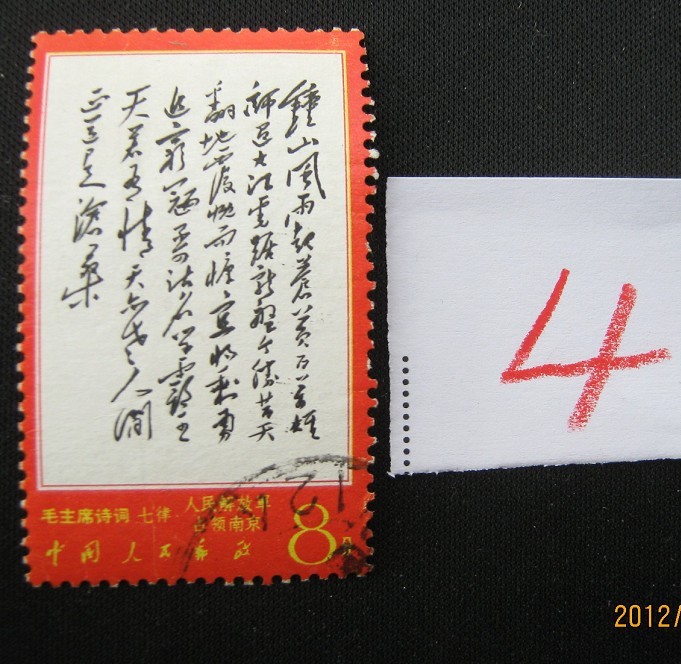 鍾山風雨起蒼黄百万雄
師过大江虎踞龍盤今勝昔天
翻地覆慨而慷宜将剩勇
追窮寇不可沽名学霸王
天若有情天亦老人间
正道是滄桑
毛主席诗词 七律 人民解放军
占领南京
中国人民邮政 8分
4
2012/